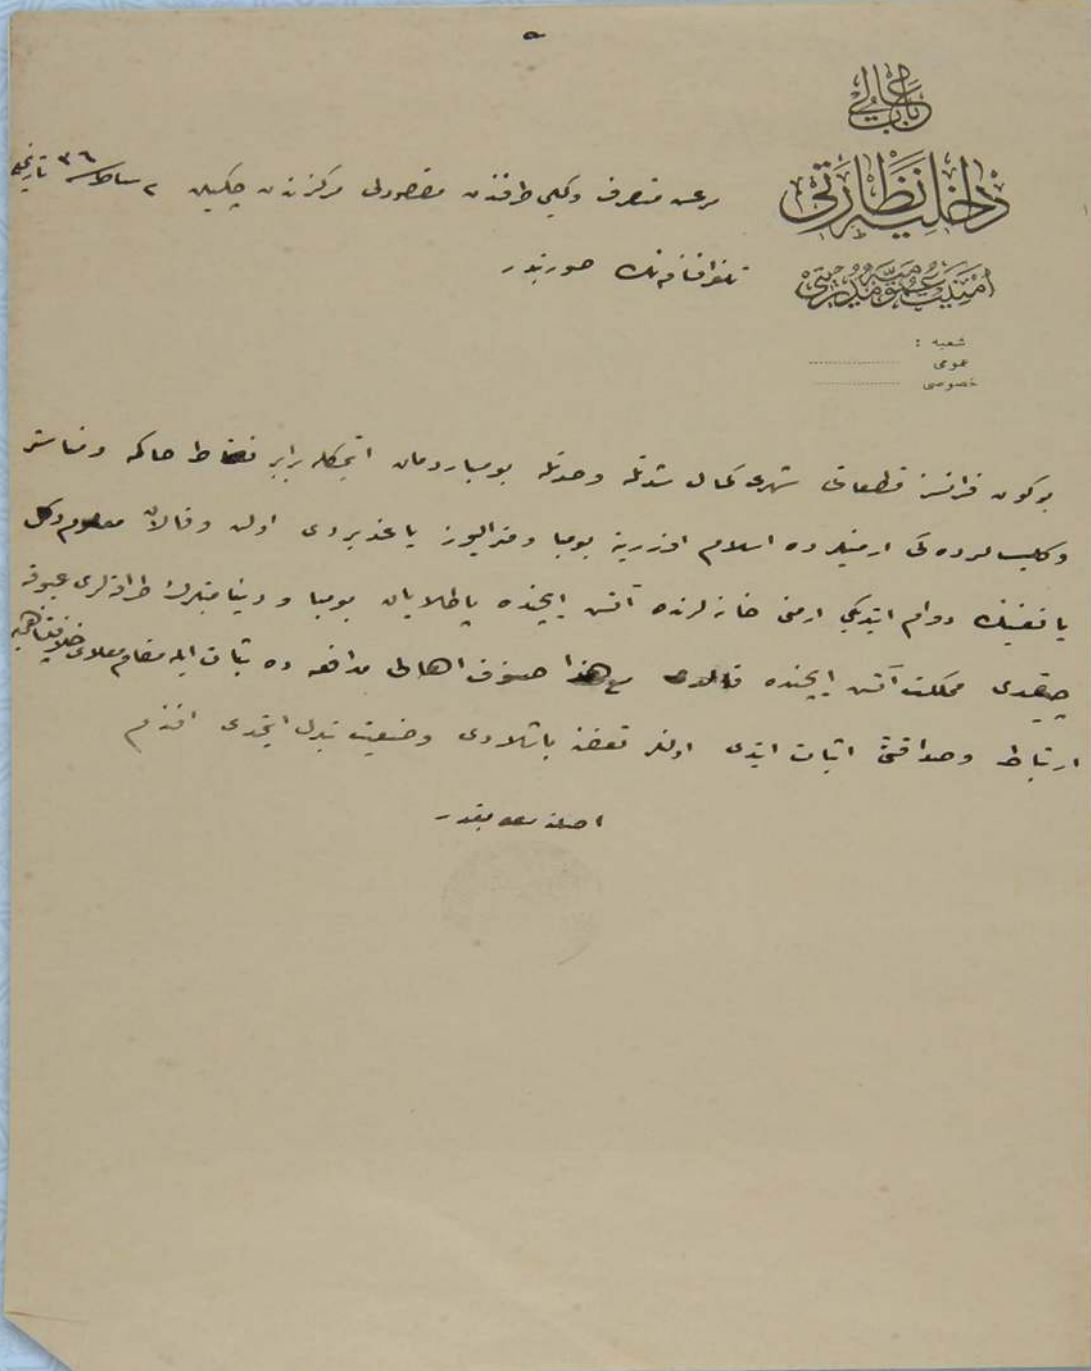 ٥
باب عالی
داخلیه نظارتی
امنیت عمومیه مدیریتی
شعبه :
عمومی
خصوصی
مرعش متصرف وکیلی طرفندن مقصودلی مرکزندن چکیلن ٢ شباط سنه ٣٦ تاریخلی
تلغرافنامه‌نك صورتیدر
بوکون فرانسز قطعاتی شهری کمال شدتله وحدتله بومباردمان ایتمکله برابر نقاط حاکمه و مناستر
وکلیسالرده کی ارمنیلرده اسلام اوزرینه بومبا ومترالیوز یاغدیردی اولن وقالان معلوم دکل
یانغینك دوام ایتدیکی ارمنی خانه‌لرنده آتش ایچنده پاطلایان بومبا و دینامیتلرك طراقه‌لری عیوقه
چیقدی مملکت آتش ایچنده قالدی مع هذا صنوف اهالی مدافعه ده ثبات ایله مقام معلای خلافتپناهی‌یه
ارتباط وصداقتنی اثبات ایتدی اولنلر تعفنه باشلادی وضعیت تبدل ایتمدی افندم
اصلنه مطابقدر